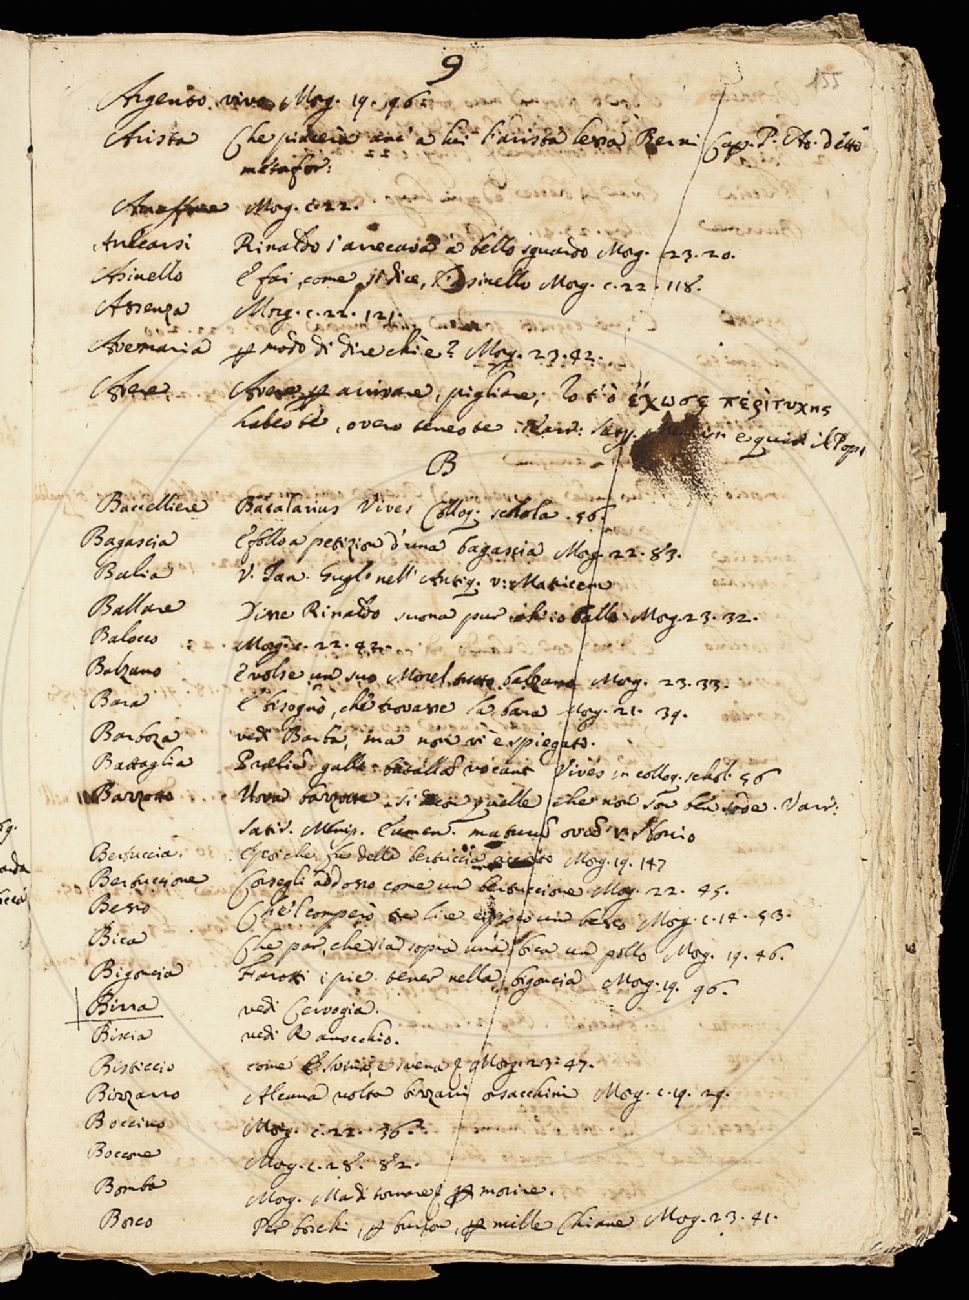 9
155
Argento vivo Morg. 19. 96.
Arista Che piaceria anc' a lui l'arista lessa Berni Cap. P. Ar. detto
metafor:
Morg. c. 22.
Arecarsi Rinaldo s'arrecava a bello sguardo Morg. 23. 20.
Asinello E fai, come si dice, l'Asinello Morg. c. 22. 118.
Assenza Morg. c. 22. 121.
Avemaria modo di dire chi è? Morg. 23. 42.
Avere Avere arrivare, pigliare; Io t'ò ἔχωσε περιτυχης
habeo te, overo teneo te
B
Baccelliere Batalarius Vives Colloq. schola. 56.
Bagascia E folle a petizion d'una bagascia Morg. 22. 83.
Balia V. Jan. Gugl. nell' Antiq. v. Maticem
Ballare Disse Rinaldo suona pur ch'io ballo Morg. 23. 32.
Balocco Morg. c. 22. 42.
Balzano E volse un suo Morel tutto balzano Morg. 23. 33.
Bara E bisognò, che trovasse la bara Morg. 21. 39.
Barboza vedi Barba, ma non vi è spiegato.
Battaglia Prælium galli batallam vocant Vives in colloq. schol. 56
Barzotto Uova barzotte si dicon quelle che non son ben sode. Varr:
satir. Menip.
Bertuccia. E poi che fu della bertuccia Morg. 19. 147
Bertuccione Corsegli addosso come un bertuccione Morg. 22. 45.
Bezzo Che'l comperò tre lire e un bezzo Morg. c. 14. 53.
Bica Che par, che sia sopra una bica un pollo Morg. 19. 46.
Bigoncia Farotti i piè tener nella bigoncia Morg. 19. 96.
Birra vedi Cervogia.
Biscia vedi Ranocchio.
Bisticcio come Morg. 23. 47.
Bizzarro Alcuna volta bizzarri orsacchini Morg. c. 19. 29.
Boccino Morg. c. 22. 36.
Boccone Morg. c. 28. 82.
Bomba Morg. Ma di tornare morire.
Bosco Per boschi, burron, mille Chiane Morg. 23. 41.